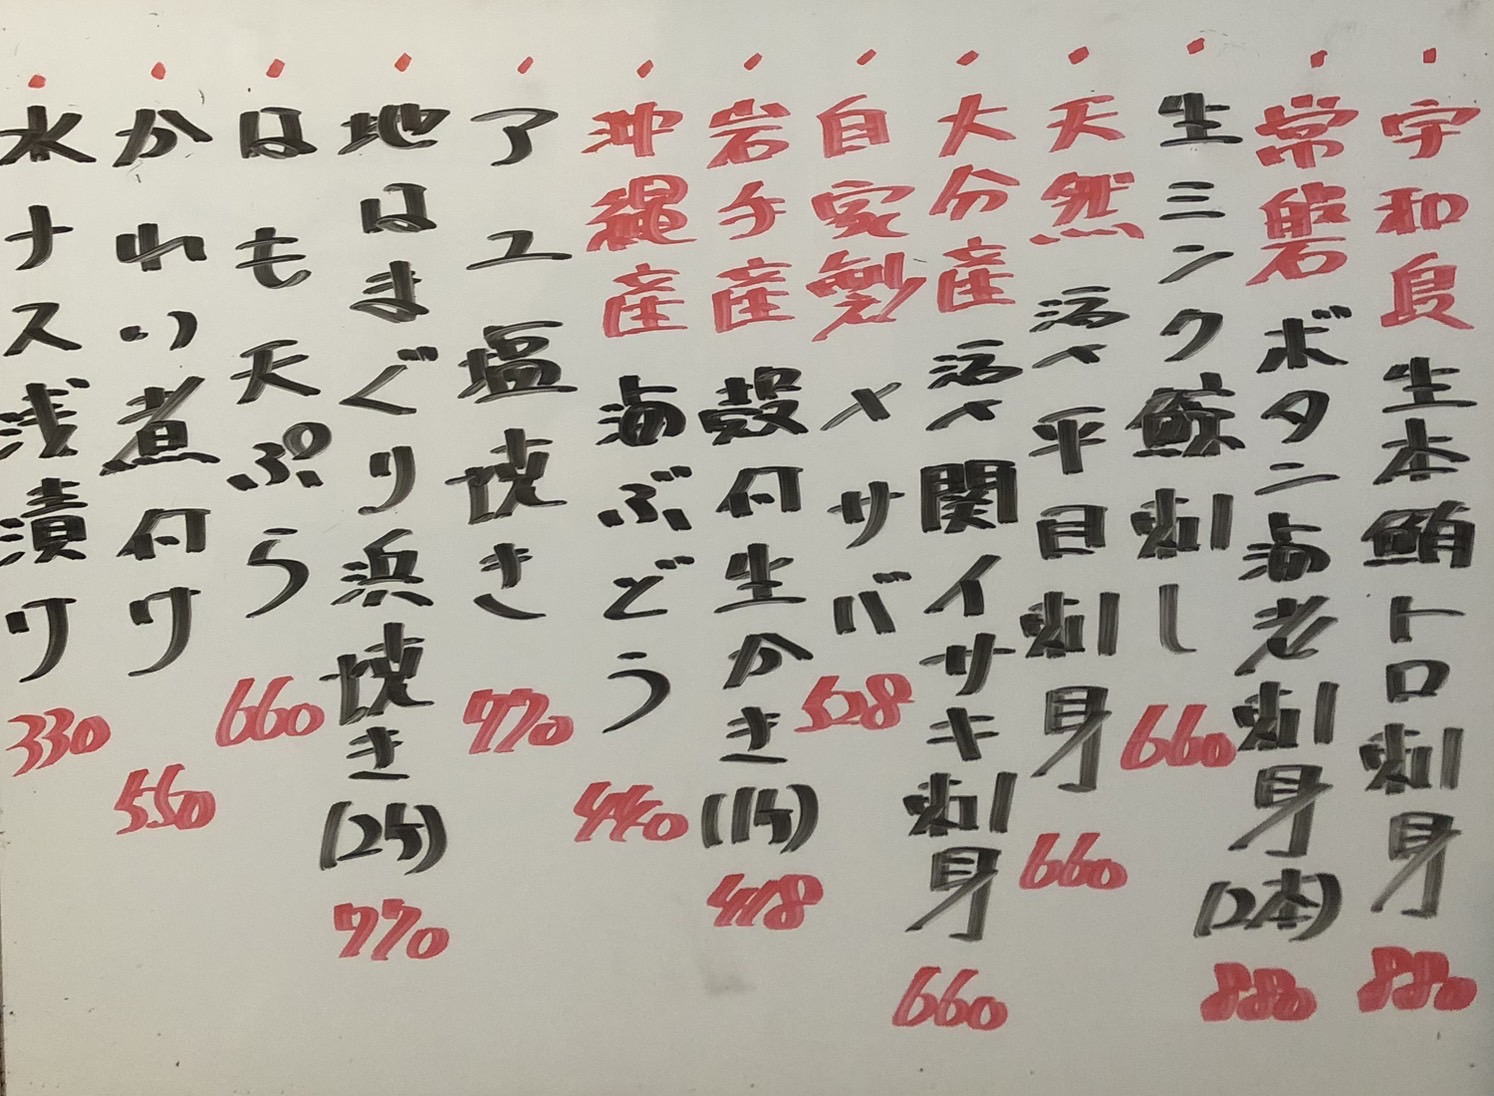 ・宇和島 生本鮪トロ刺身 880
・常磐 ボタン海老刺身(2本) 880
・生ミンク鯨刺し 660
・天然 活〆平目刺身 660
・大分産 活〆関イサキ刺身 660
・自家製 〆サバ 528
・岩手産 殻付生かき(1ケ) 418
・沖縄産 海ぶどう 440
・アユ塩焼き 770
・地はまぐり浜焼き(2ケ) 770
・はも天ぷら 660
・かれい煮付け 550
・水ナス浅漬け 330